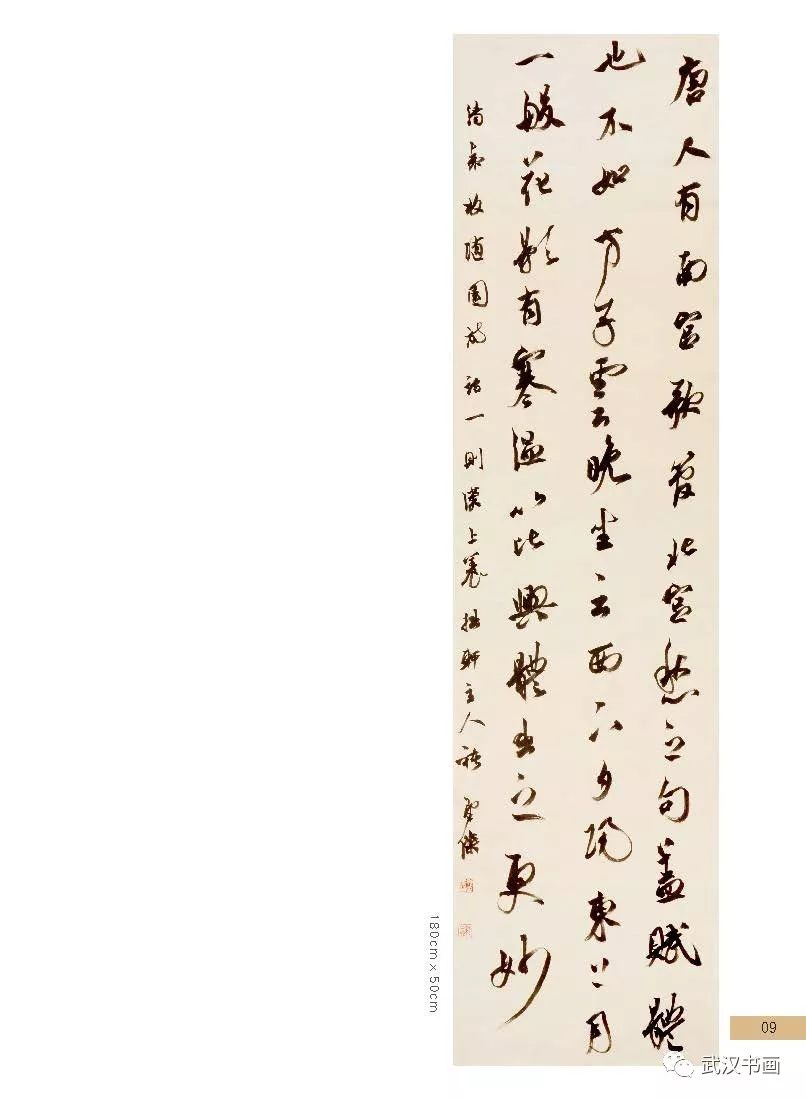 唐人有南宮歌管北宮愁之句蓋賦體
也不如方子雲晚坐云西下夕陽東上月
一般花影有寒溫以比興體出之更妙
清袁枚隨園詩話一則漢上養拙軒主人
180cm×50cm
09
武汉书画